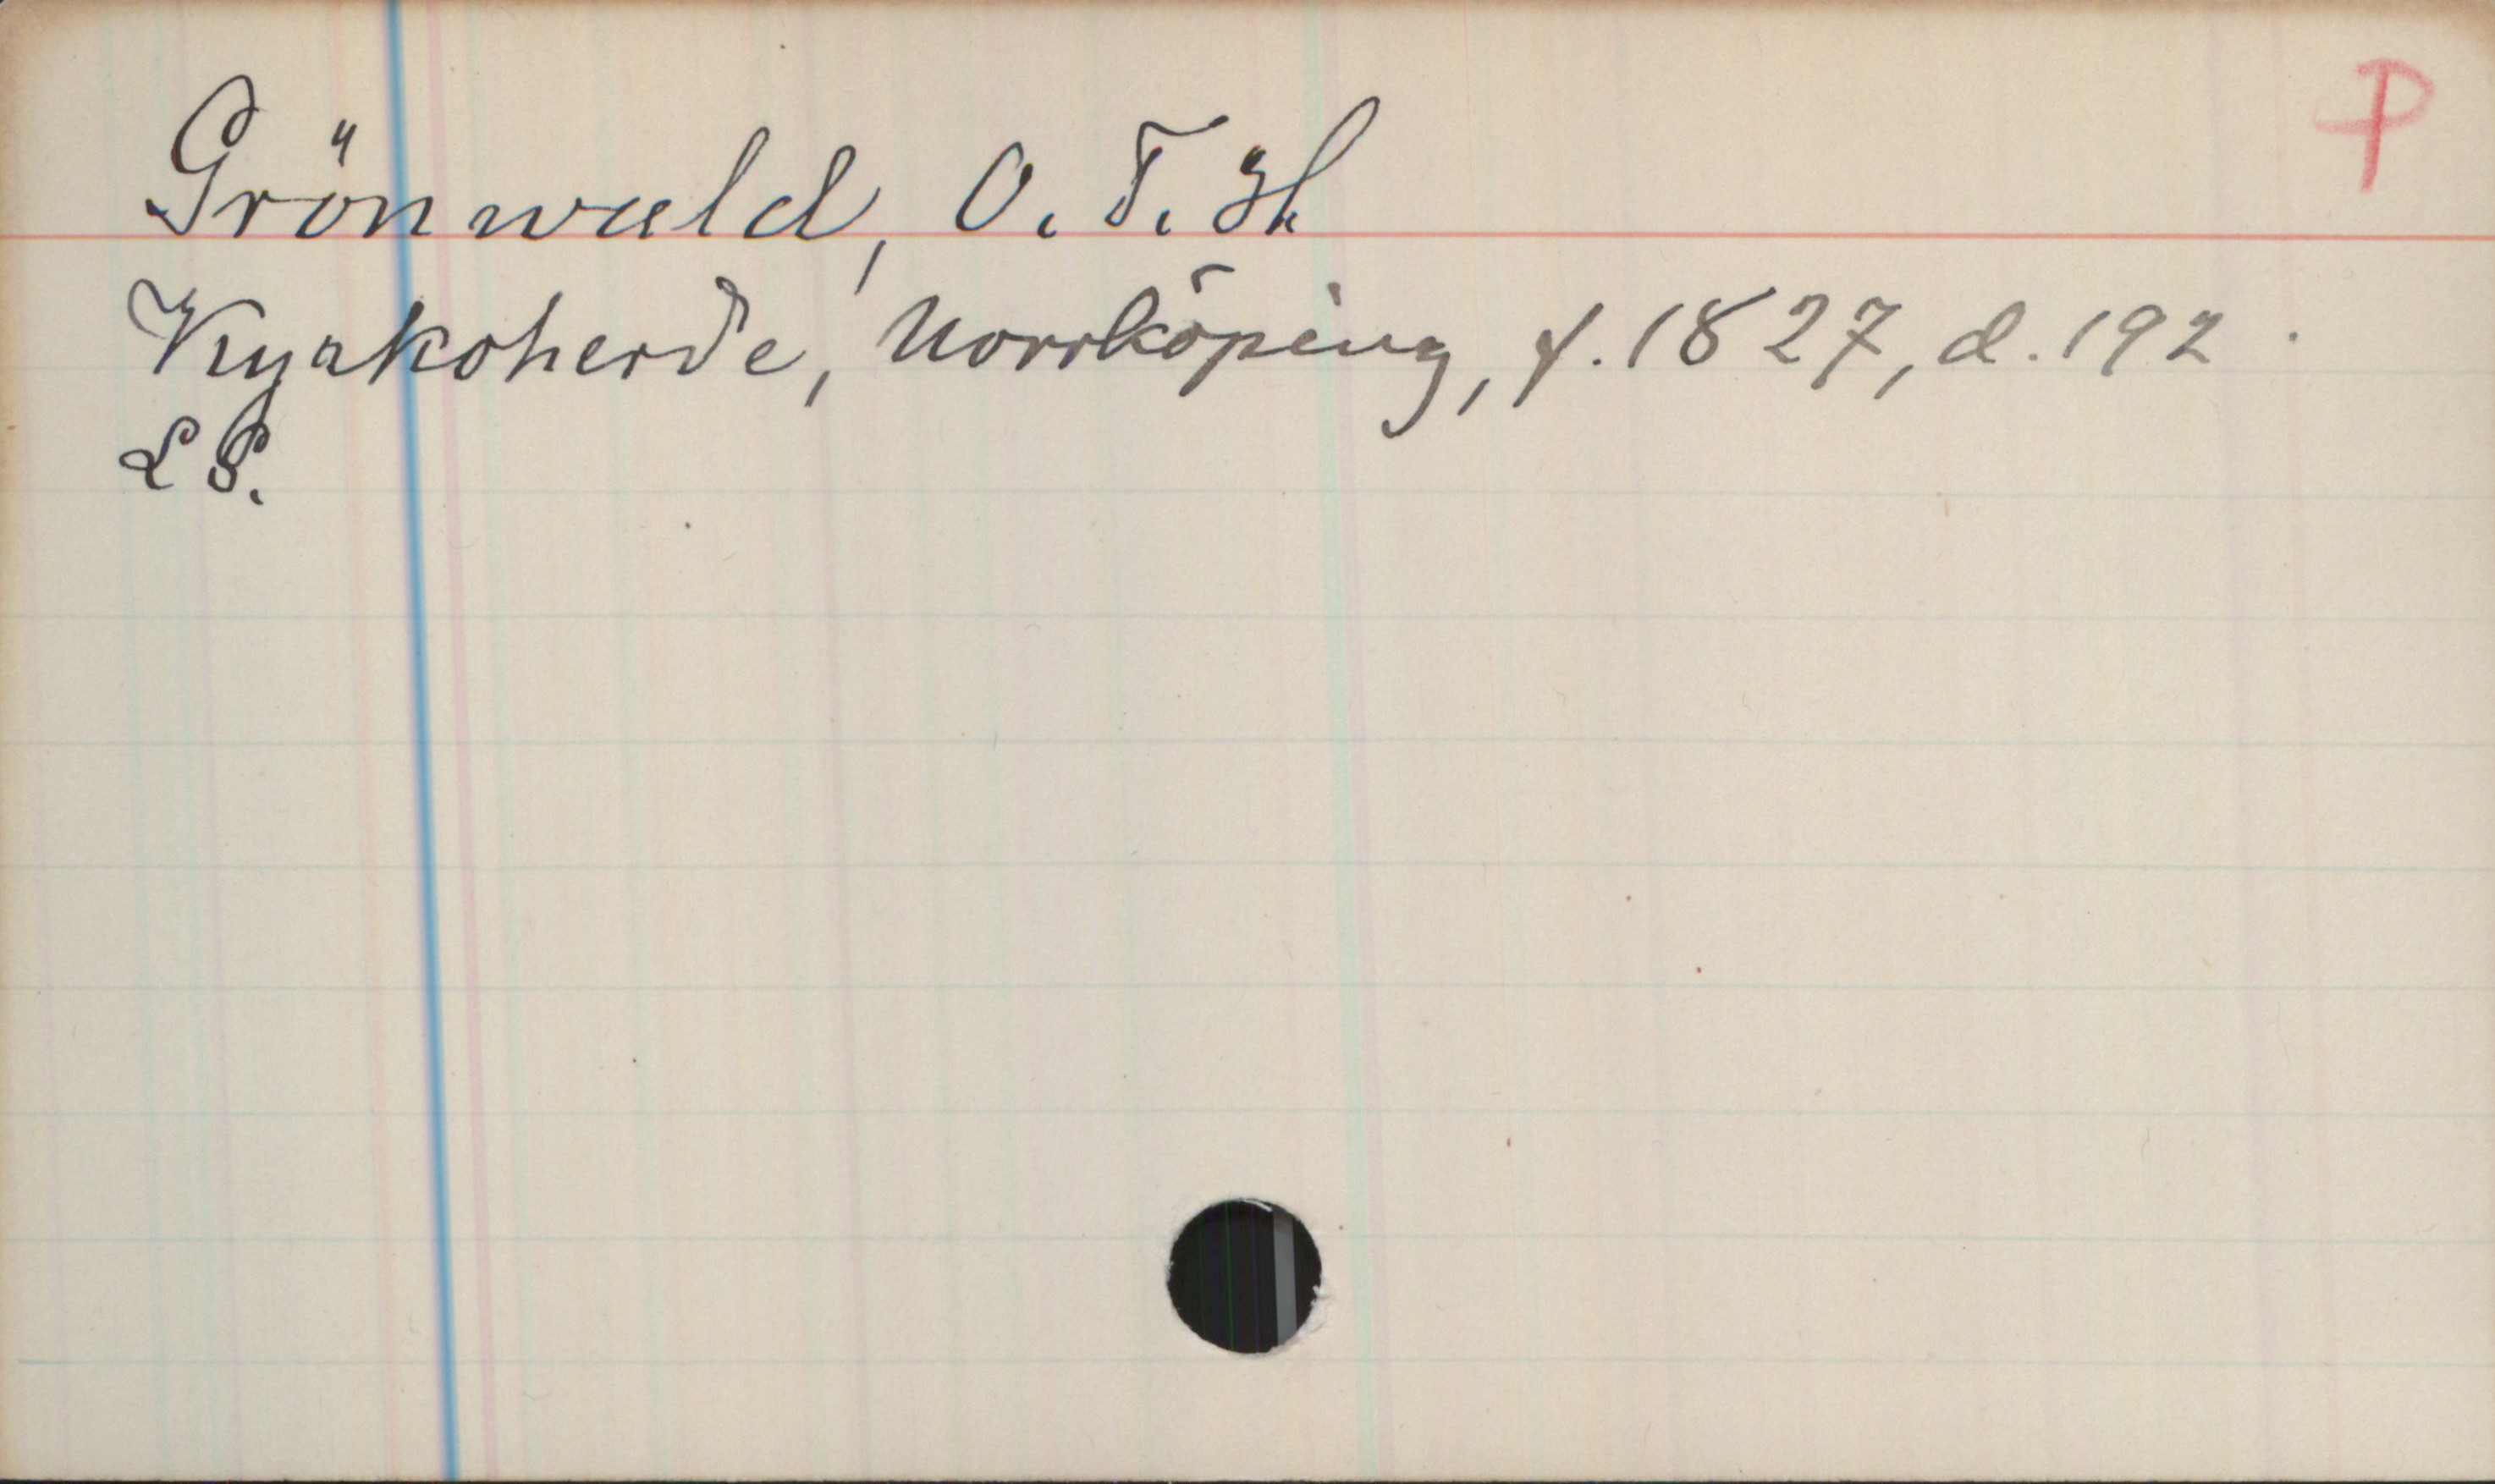 P
Grönwald, O. T. Th
Kyrkoherde, Norrköping, f. 1827, d. 192 .
LS.